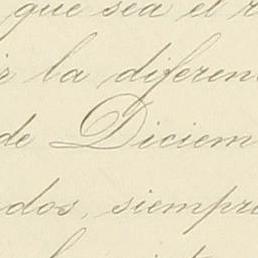 que sea el r
r la diferen
de Diciem
dos, siempre